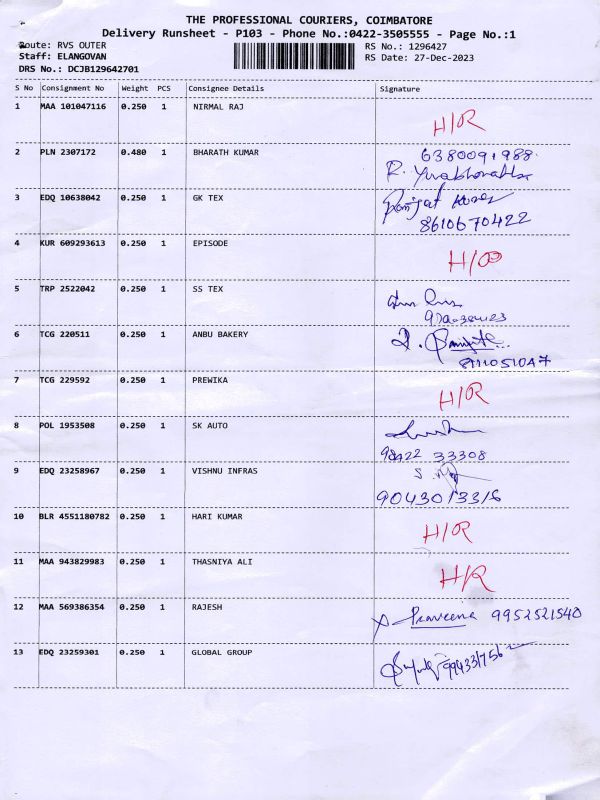 THE PROFESSIONAL COURIERS, COIMBATORE
Delivery Runsheet - P103 - Phone No.:0422-3505555 - Page No.:1
Route: RVS OUTER
RS No.: 1296427
Staff: ELANGOVAN
RS Date: 27-Dec-2023
DRS No.: DCJB129642701
S No Consignment No Weight PCS Consignee Details Signature
1 MAA 101047116 0.250 1 NIRMAL RAJ
H/R
2 PLN 2307172 0.480 1 BHARATH KUMAR 6380091988
R.
3 EDQ 10638042 0.250 1 GK TEX
8610670422
4 KUR 609293613 0.250 1 EPISODE
5 TRP 2522042 0.250 1 SS TEX
6 TCG 220511 0.250 1 ANBU BAKERY
7 TCG 229592 0.250 1 PREWIKA
H/R
8 POL 1953508 0.250 1 SK AUTO
33308
9 EDQ 23258967 0.250 1 VISHNU INFRAS
9043013316
10 BLR 4551180782 0.250 1 HARI KUMAR
H/R
11 MAA 943829983 0.250 1 THASNIYA ALI
H/R
12 MAA 569386354 0.250 1 RAJESH
Praveena 9952521540
13 EDQ 23259301 0.250 1 GLOBAL GROUP